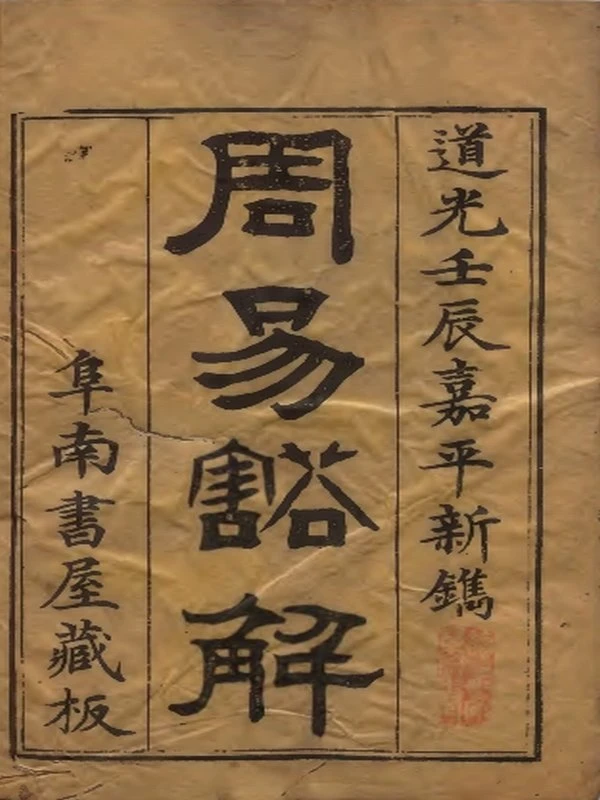 道光壬辰嘉平新鐫
周易豁解
阜南書屋藏板